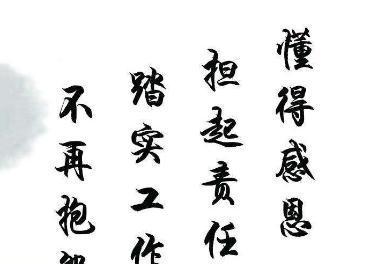 懂得感恩
担起责任
踏实工作
不再抱